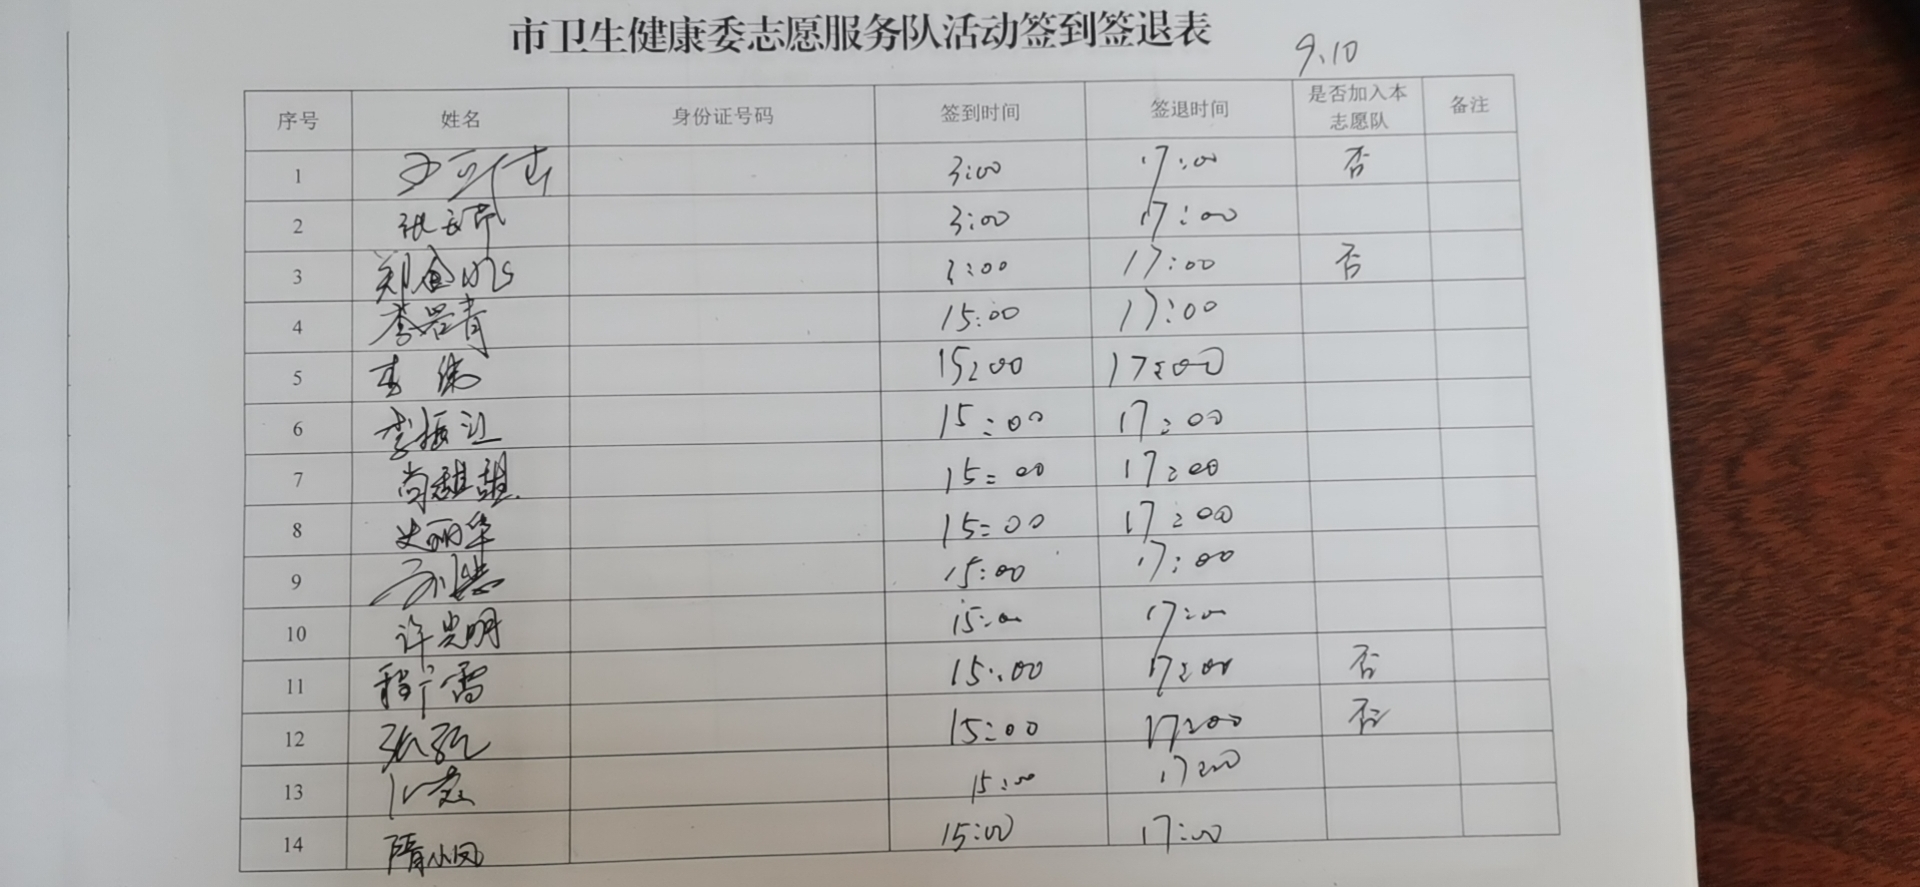 市卫生健康委志愿服务队活动签到签退表
9.10
序号 姓名 身份证号码 签到时间 签退时间 是否加入本志愿队 备注
1 3:00 17:00 否
2 3:00 17:00
3 郑金 3:00 17:00 否
4 李岩青 15:00 17:00
5 李伟 15:00 17:00
6 李振江 15:00 17:00
7 尚 15:00 17:00
8 史丽华 15:00 17:00
9 15:00 17:00
10 许光明 15:00 17:00
11 程广雷 15:00 17:00 否
12 15:00 17:00 否
13 15:00 17:00
14 隋小凤 15:00 17:00